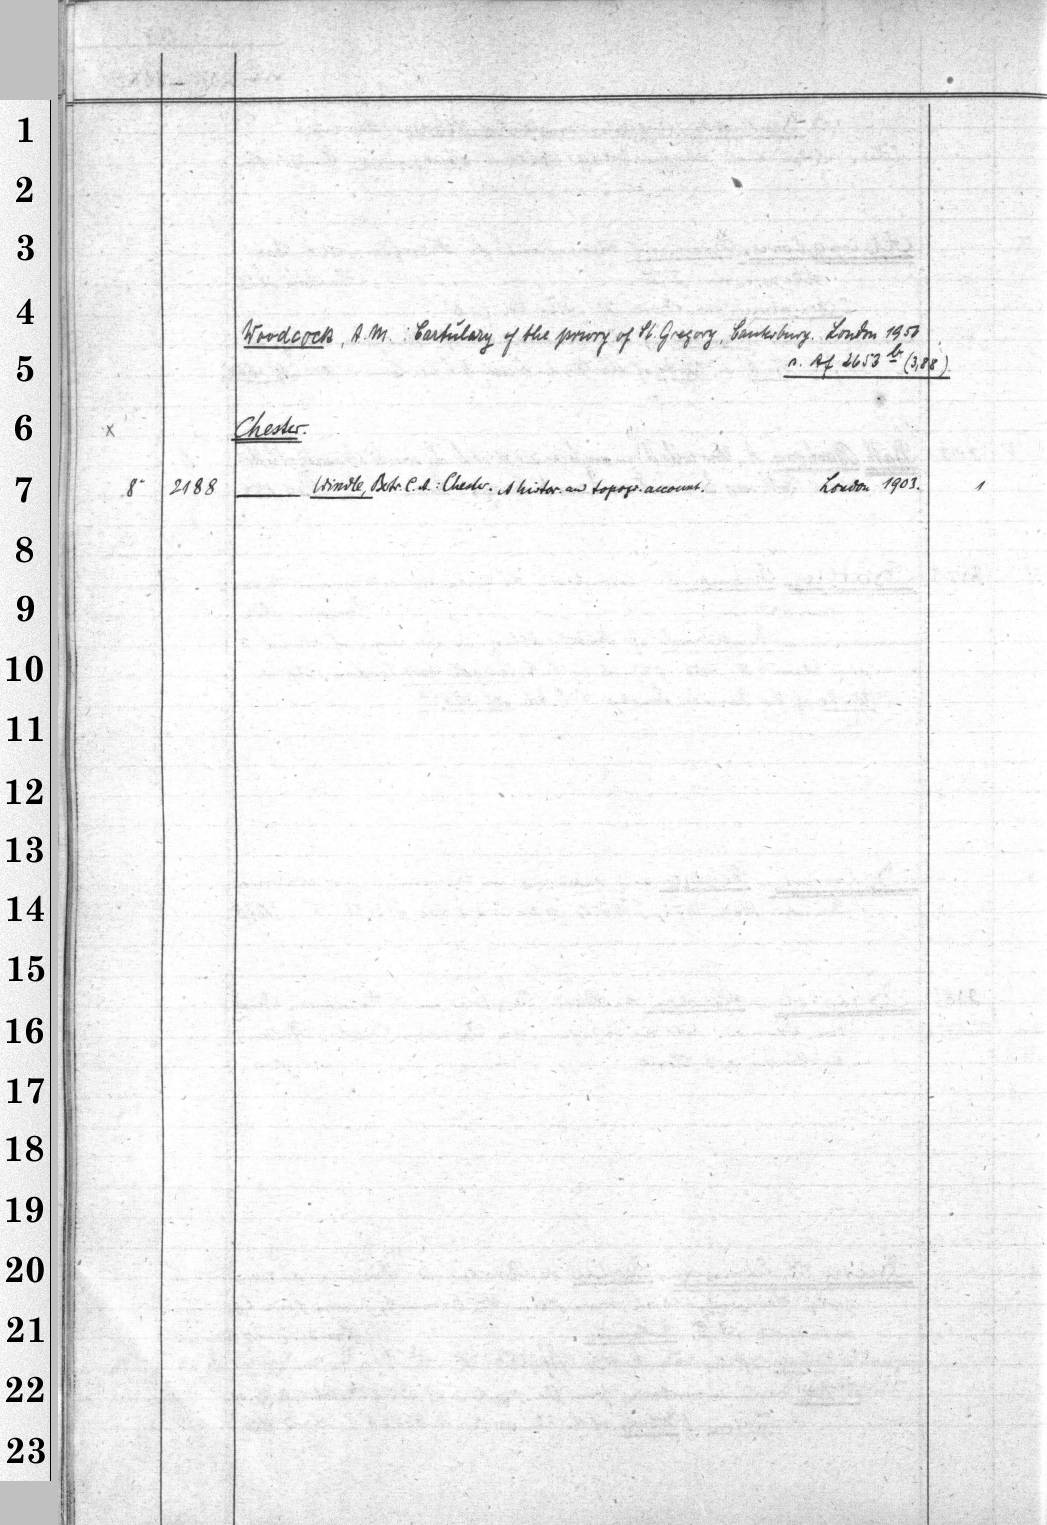 1
2
3
4
Woodcock, A. M. : Cartulary of the priory of St. Gregory, Canterbury. London 1956
5
s. Af 2653 b (3,88)
6
x Chester.
7
8° 2188 Windle, Bctr. C. A. : Chester. A histor. and topogr. account. London 1903. 1
8
9
10
11
12
13
14
15
16
17
18
19
20
21
22
23